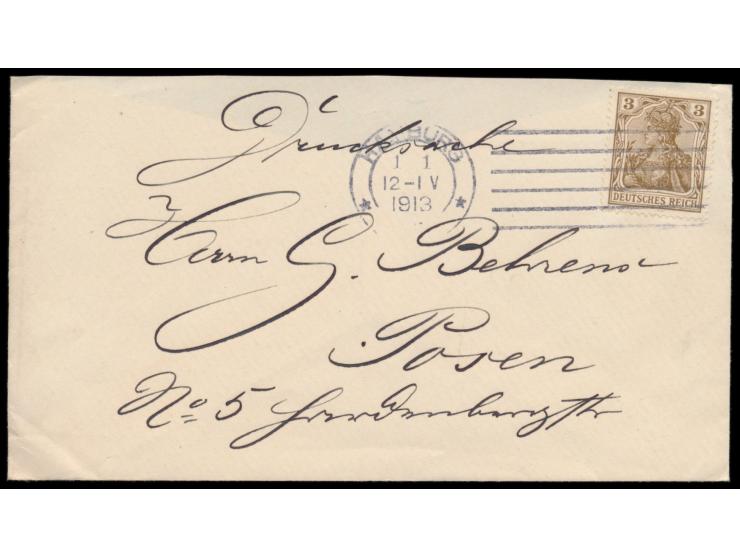 Drucksache
HAMBURG
1 1
12-1 V
1913
3 3
DEUTSCHES REICH
Herrn G. Behrens
Posen
No 5 Hardenbergstr